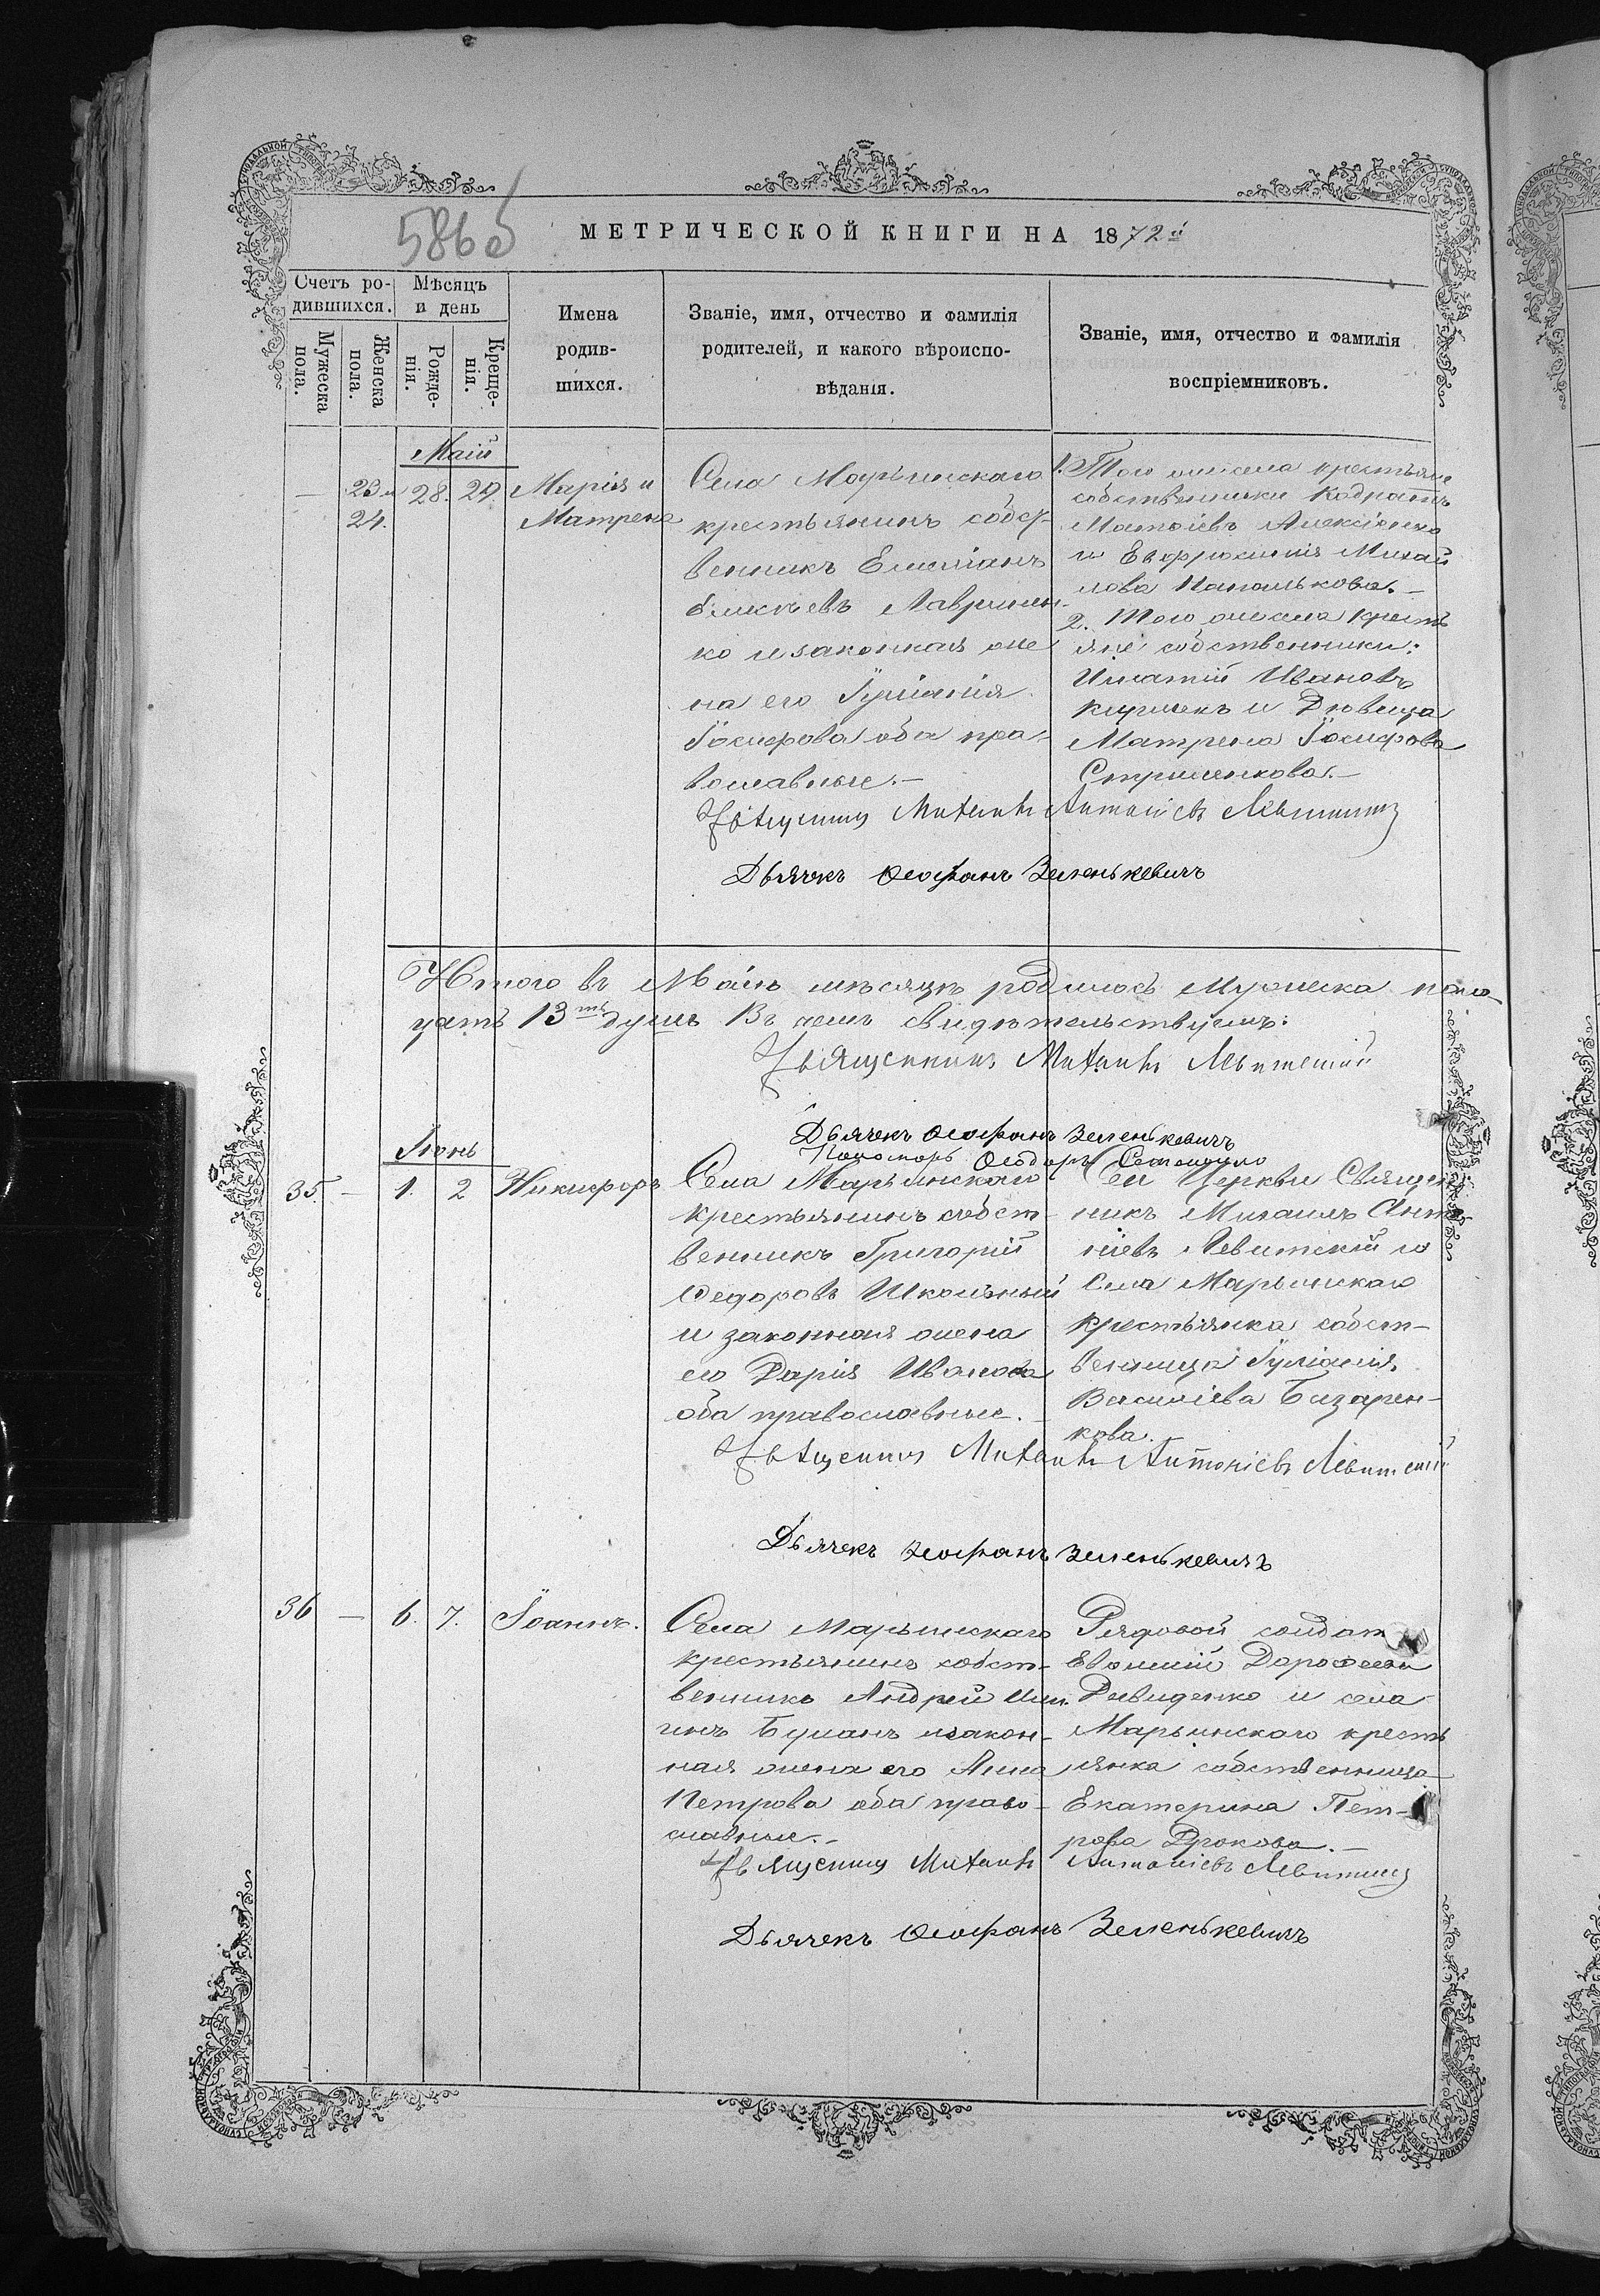 586об
МЕТРИЧЕСКОЙ КНИГИ НА 1872й
Счетъ ро-
дившихся.
Мѣсяцъ
и день
Мужеска
пола.
Женска
пола.
Рожде-
нія.
Креще-
нія.
Имена
родив-
шихся.
Званіе, имя, отчество и фамилія
родителей, и какого вѣроиспо-
вѣданія.
Званіе, имя, отчество и фамилія
воспріемниковъ.
Маій
— 23 и 28. 29. Марія и
24. Матрена
Села Марьинскаго
крестьянинъ собст-
венникъ Емиліанъ
Лавринен-
ко и законная же-
на его Іуліанія
Іосифова оба пра-
вославные.—
1. Того же села крестьяне
собственники Кодратъ
Матѳіевъ Алексіенко
и Евфросинія Михай
лова
2. Того же села кресть
яне собственники:
Игнатій Ивановъ
и Дѣвица
Матрена Іосифова
Стриженкова.—
Священникъ Михаилъ Антоніевъ Левитскій
Дьячекъ Ѳеофанъ Зеленькевичъ
Итого въ Маіѣ мѣсяцѣ родилось мужеска пола
13ть душъ Въ чемъ свидѣтельствуемъ:
Священникъ Михаилъ Левитскій
Дьячекъ Ѳеофанъ Зеленькевичъ
Пономарь Ѳеодоръ
Іюнь
35. — 1. 2 Никифоръ
Села Марьинскаго
крестьянинъ собст-
венникъ Григорій
Ѳедоровъ Школьный
и законная жена
его Дарія Иванова
оба православные.—
Сей Церкви Священ-
никъ Михаилъ Анто-
ніевъ Левитскій и
Села Марьинскаго
крестьянка собст-
венница Іуліанія
Василіева Бизарен-
кова.
Священникъ Михаилъ Антоніевъ Левитскій
Дьячекъ Ѳеофанъ Зеленькевичъ
36 — 6. 7. Іоаннъ.
Села Марьинскаго
крестьянинъ собст-
венникъ Андрей
инъ и закон-
ная жена его Анна
Петрова оба право-
славные.—
Рядовой солдат
Евѳимій Дороѳеевъ
Дивиденко и села
Марьинскаго кресть
янка собственница
Екатерина Пет-
рова Дрокова.—
Священникъ Михаилъ Антоніевъ Левитскій
Дьячекъ Ѳеофанъ Зеленькевичъ